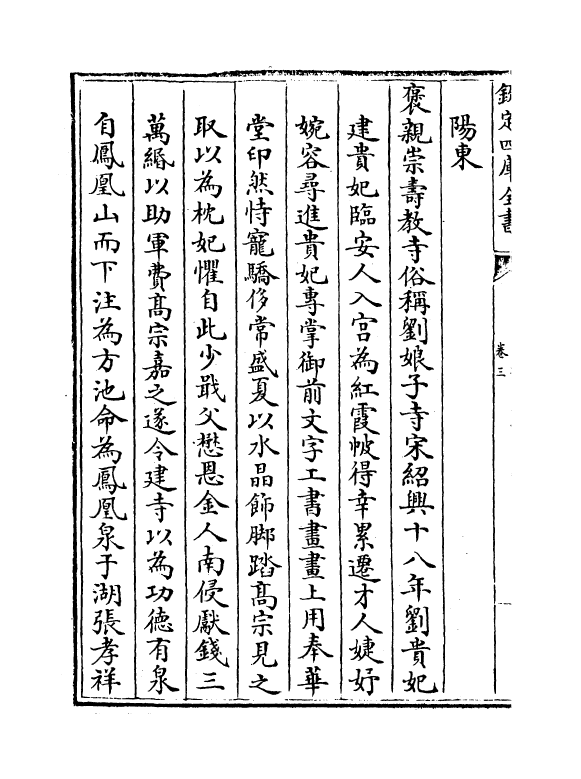 欽定四庫全書
卷三
陽東
褒親崇壽教寺俗稱劉娘子寺宋紹興十八年劉貴妃
建貴妃臨安人入宫為紅霞帔得幸累遷才人婕妤
婉容尋進貴妃專掌御前文字工書畫畫上用奉華
堂印然恃寵驕侈常盛夏以水晶飾脚踏髙宗見之
取以為枕妃懼自此少戢父懋恩金人南侵獻錢三
萬緡以助軍費髙宗嘉之遂令建寺以為功德有泉
自鳳凰山而下注為方池命為鳳凰泉于湖張孝祥